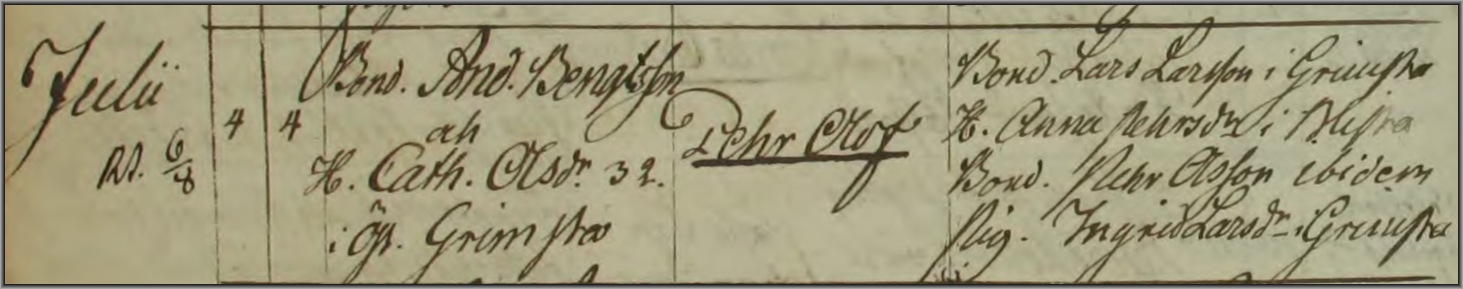 Julii
4 4
Bond. And. Bengtsson
och
H. Cath. Olsdr. 32.
i Ös. Grimsta
Pehr Olof
Bond. Lars Larsson i Grimsta
H. Anna Pehrsdr i
Bond. Pehr Olsson ibidem
Pig. Ingrid Larsdr i Grimsta